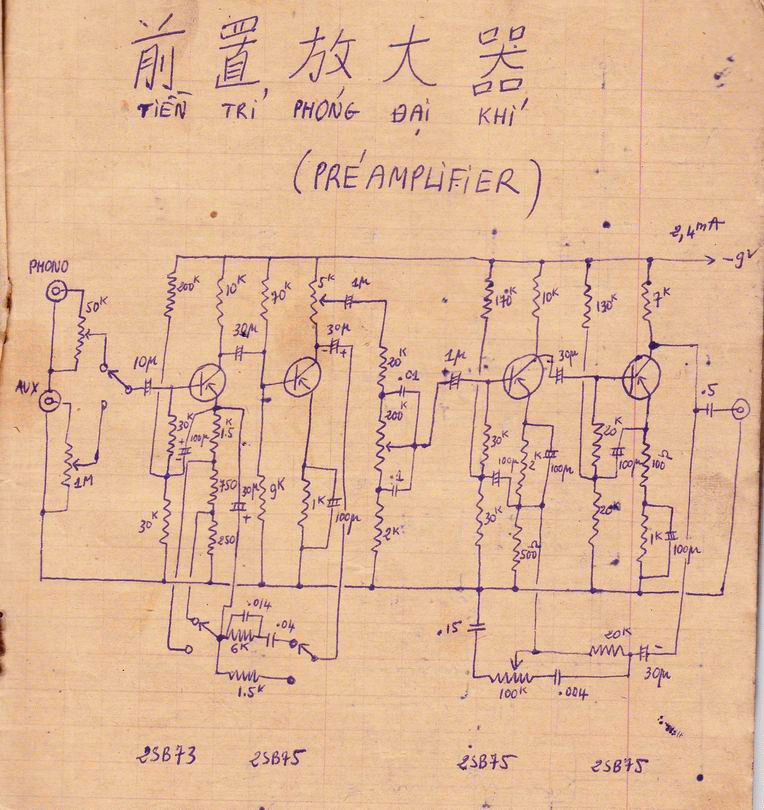 前置放大器
TIỀN TRÍ PHÓNG ĐẠI KHÍ
(PRÉAMPLIFIER)
2,4mA
-9V
PHONO
50K
200K
10K
70K
5K
1µ
170K
10K
130K
7K
30µ
30µ
10µ
AUX
20K
.01
1µ
30µ
.5
200K
30K
100µ
1.5K
30K
100µ
2K
100µ
20K
100µ
100Ω
1M
750
30µ
9K
.1
30K
250
1K
100µ
2K
30K
500Ω
20K
1K
100µ
.014
.04
6K
1.5K
.15
20K
100K
.004
30µ
2SB73 2SB75 2SB75 2SB75